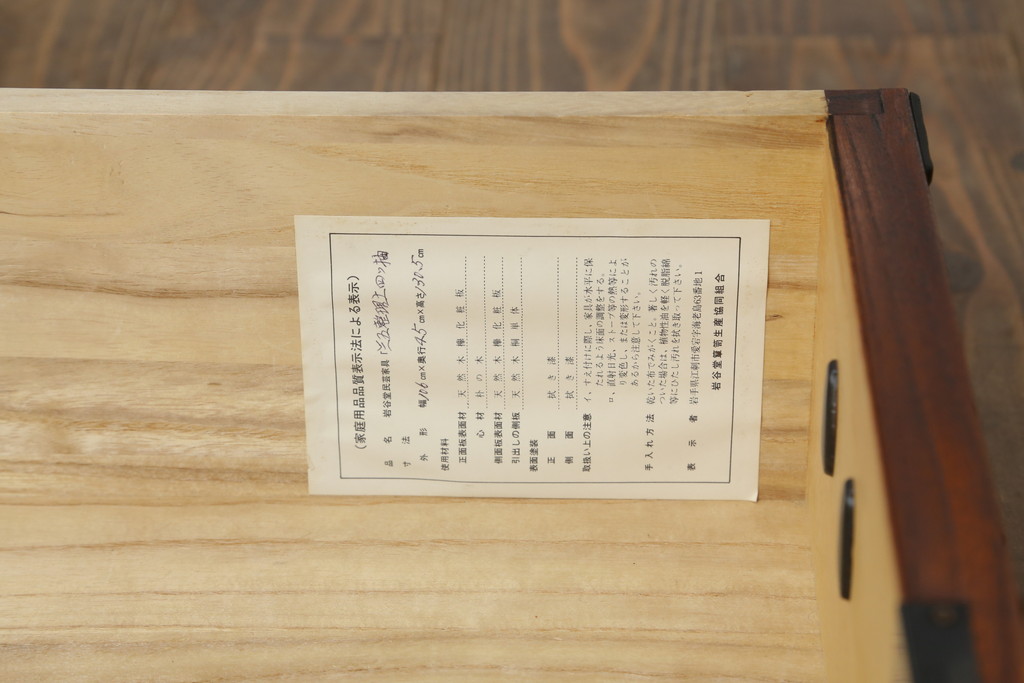 (家庭用品品質表示法による表示)
品名 岩谷堂民芸家具「三五整理上四ッ抽
寸法
外形 幅106cm×奥行45cm×高さ130.5cm
使用材料
正面板表面材 天然木欅化粧板
心材 朴の木
側面板表面材 天然木欅化粧板
引出しの側板 天然木桐単体
表面塗装
正面 拭き漆
側面 拭き漆
取扱い上の注意 イ、すえ付けに際し、家具が水平に保
たれるよう床面の調整をする。
ロ、直射日光、ストーブ等の熱等によ
り変色し、または変形することが
あるから注意して下さい。
手入れ方法 乾いた布でみがくこと。著しく汚れの
ついた場合は、植物性油を軽く脱脂綿
等にひたし汚れを拭き取って下さい。
表示者 岩手県江刺市愛宕字海老島63番地1
岩谷堂箪笥生産協同組合